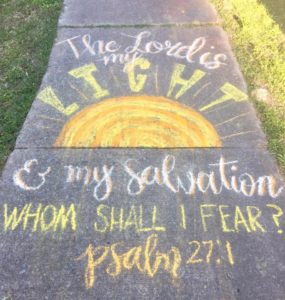 The Lord is
my
LIGHT
& my Salvation
WHOM SHALL I FEAR?
psalm 27:1